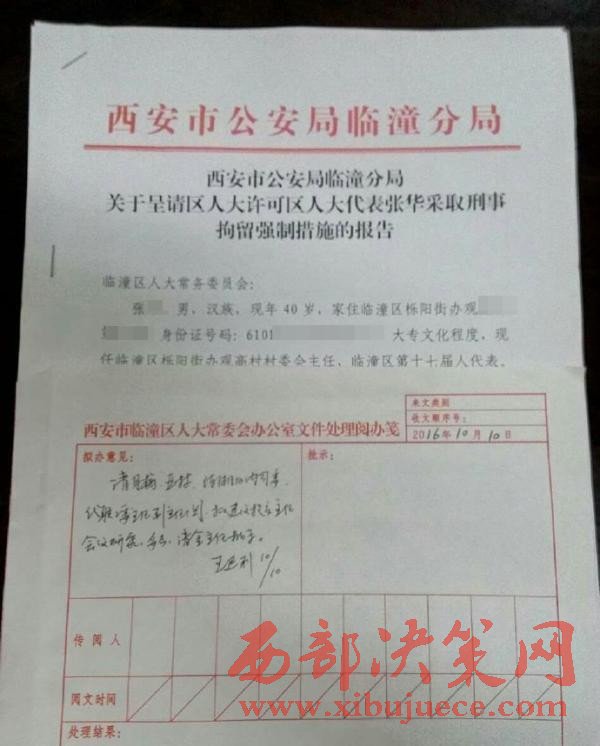 西安市公安局临潼分局
西安市公安局临潼分局
关于呈请区人大许可区人大代表张华采取刑事
拘留强制措施的报告
临潼区人大常务委员会：
张 男，汉族，现年40岁，家住临潼区栎阳街办观
身份证号码：6101 大专文化程度，现
任临潼区栎阳街办观高村村委会主任，临潼区第十七届人代表。
来文类别
收文顺序号：
西安市临潼区人大常委会办公室文件处理阅办笺
2016年10月10日
拟办意见：
批示：
会议研究
10/10
传阅人
阅文时间
处理结果：
西部决策网
www.xibujuece.com